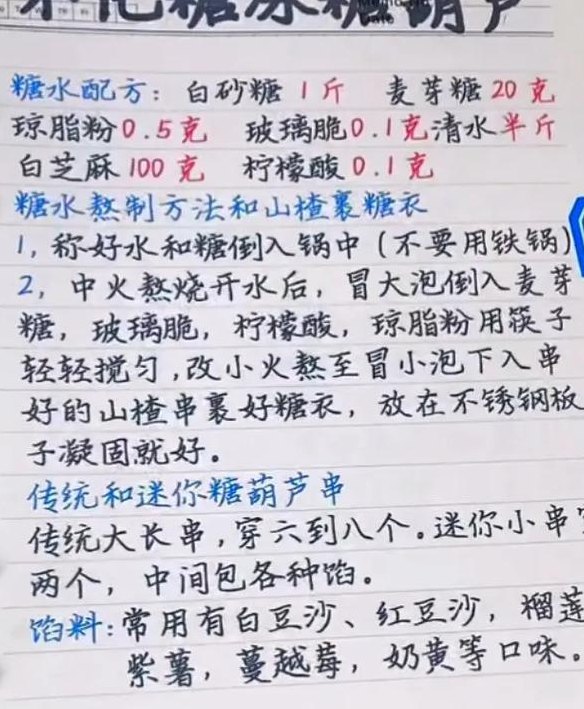 不化糖冰糖葫芦
糖水配方：白砂糖1斤 麦芽糖20克
琼脂粉0.5克 玻璃脆0.1克清水半斤
白芝麻100克 柠檬酸0.1克
糖水熬制方法和山楂裹糖衣
1，称好水和糖倒入锅中（不要用铁锅）
2，中火熬烧开水后，冒大泡倒入麦芽
糖，玻璃脆，柠檬酸，琼脂粉用筷子
轻轻搅匀，改小火熬至冒小泡下入串
好的山楂串裹好糖衣，放在不锈钢板
子凝固就好。
传统和迷你糖葫芦串
传统大长串，穿六到八个。迷你小串穿
两个，中间包各种馅。
馅料：常用有白豆沙、红豆沙，榴莲
紫薯，蔓越莓，奶黄等口味。